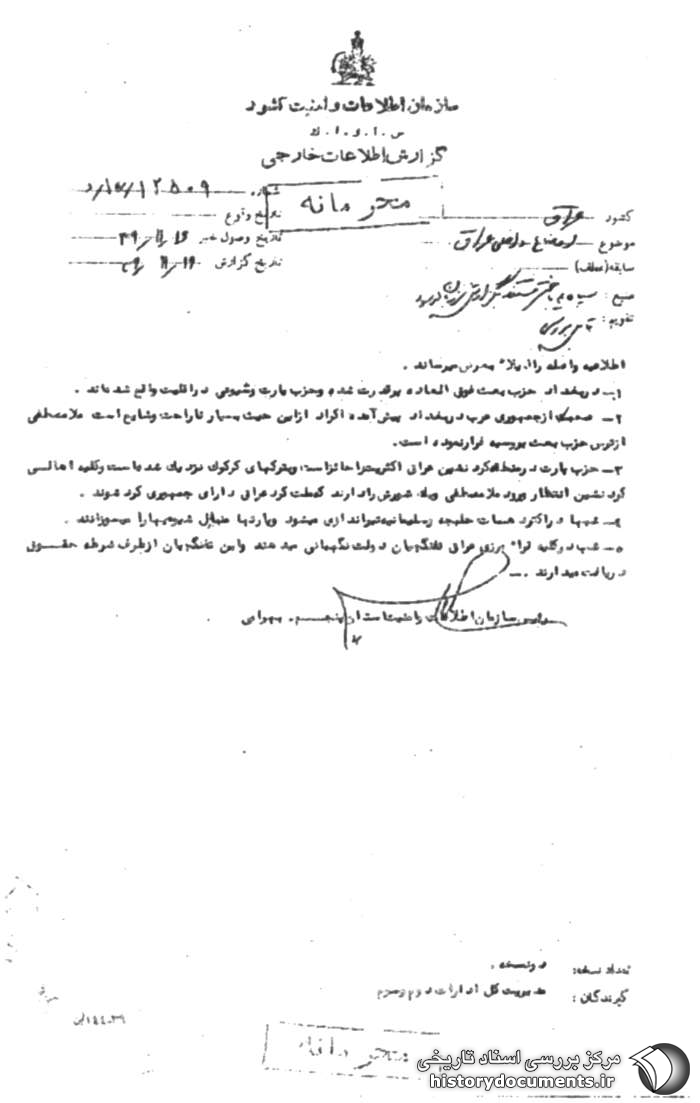 سازمان اطلاعات و امنیت کشور
س . ا . و . ا . ك
گزارش اطلاعات خارجی
محرمانه
شماره
تاریخ وقوع
تاریخ وصول خبر ۳۹/۱۱/۱۶
تاریخ گزارش
کشور عراق
موضوع اوضاع داخلی عراق
سابقه (عطف)
منبع :
تقویم :
اطلاعیه واصله را ذیلا" بعرض میرساند .
۱- در بغداد حزب بعث فوق العاده پر قدرت شده و حزب پارت و شیوعی در اقلیت واقع شده اند .
۲- از جمهوری عرب در بغداد پیش آمده اکراد از این حیث بسیار ناراحت و شایع است ملا مصطفی
از ترس حزب بعث بروسیه فرار نموده است .
۳- حزب پارت در منطقه کرد نشین عراق اکثریت را حائز است کرکوك نزدیك شده است و کلیه اهالی
کرد نشین انتظار ورود ملا مصطفی و یك شورش را دارند که ملت کرد عراق دارای جمهوری کرد شوند .
۴- شبها در اکثر دهات حلبجه و سلیمانیه تیراندازی میشود و پارتیها منازل شیوعیها را میسوزانند .
۵- شب در کلیه مرزی عراق تفنگچیان دولت نگهبانی میدهند و این تفنگچیان از طرف شرطه حقوق
دریافت میدارند .
سازمان اطلاعات و امنیت استان پنجم . بهرامی
تعداد نسخه : دو نسخه .
گیرندگان : مدیریت کل ادارات دوم و سوم
محرمانه
مرکز بررسی اسناد تاریخی
historydocuments.ir